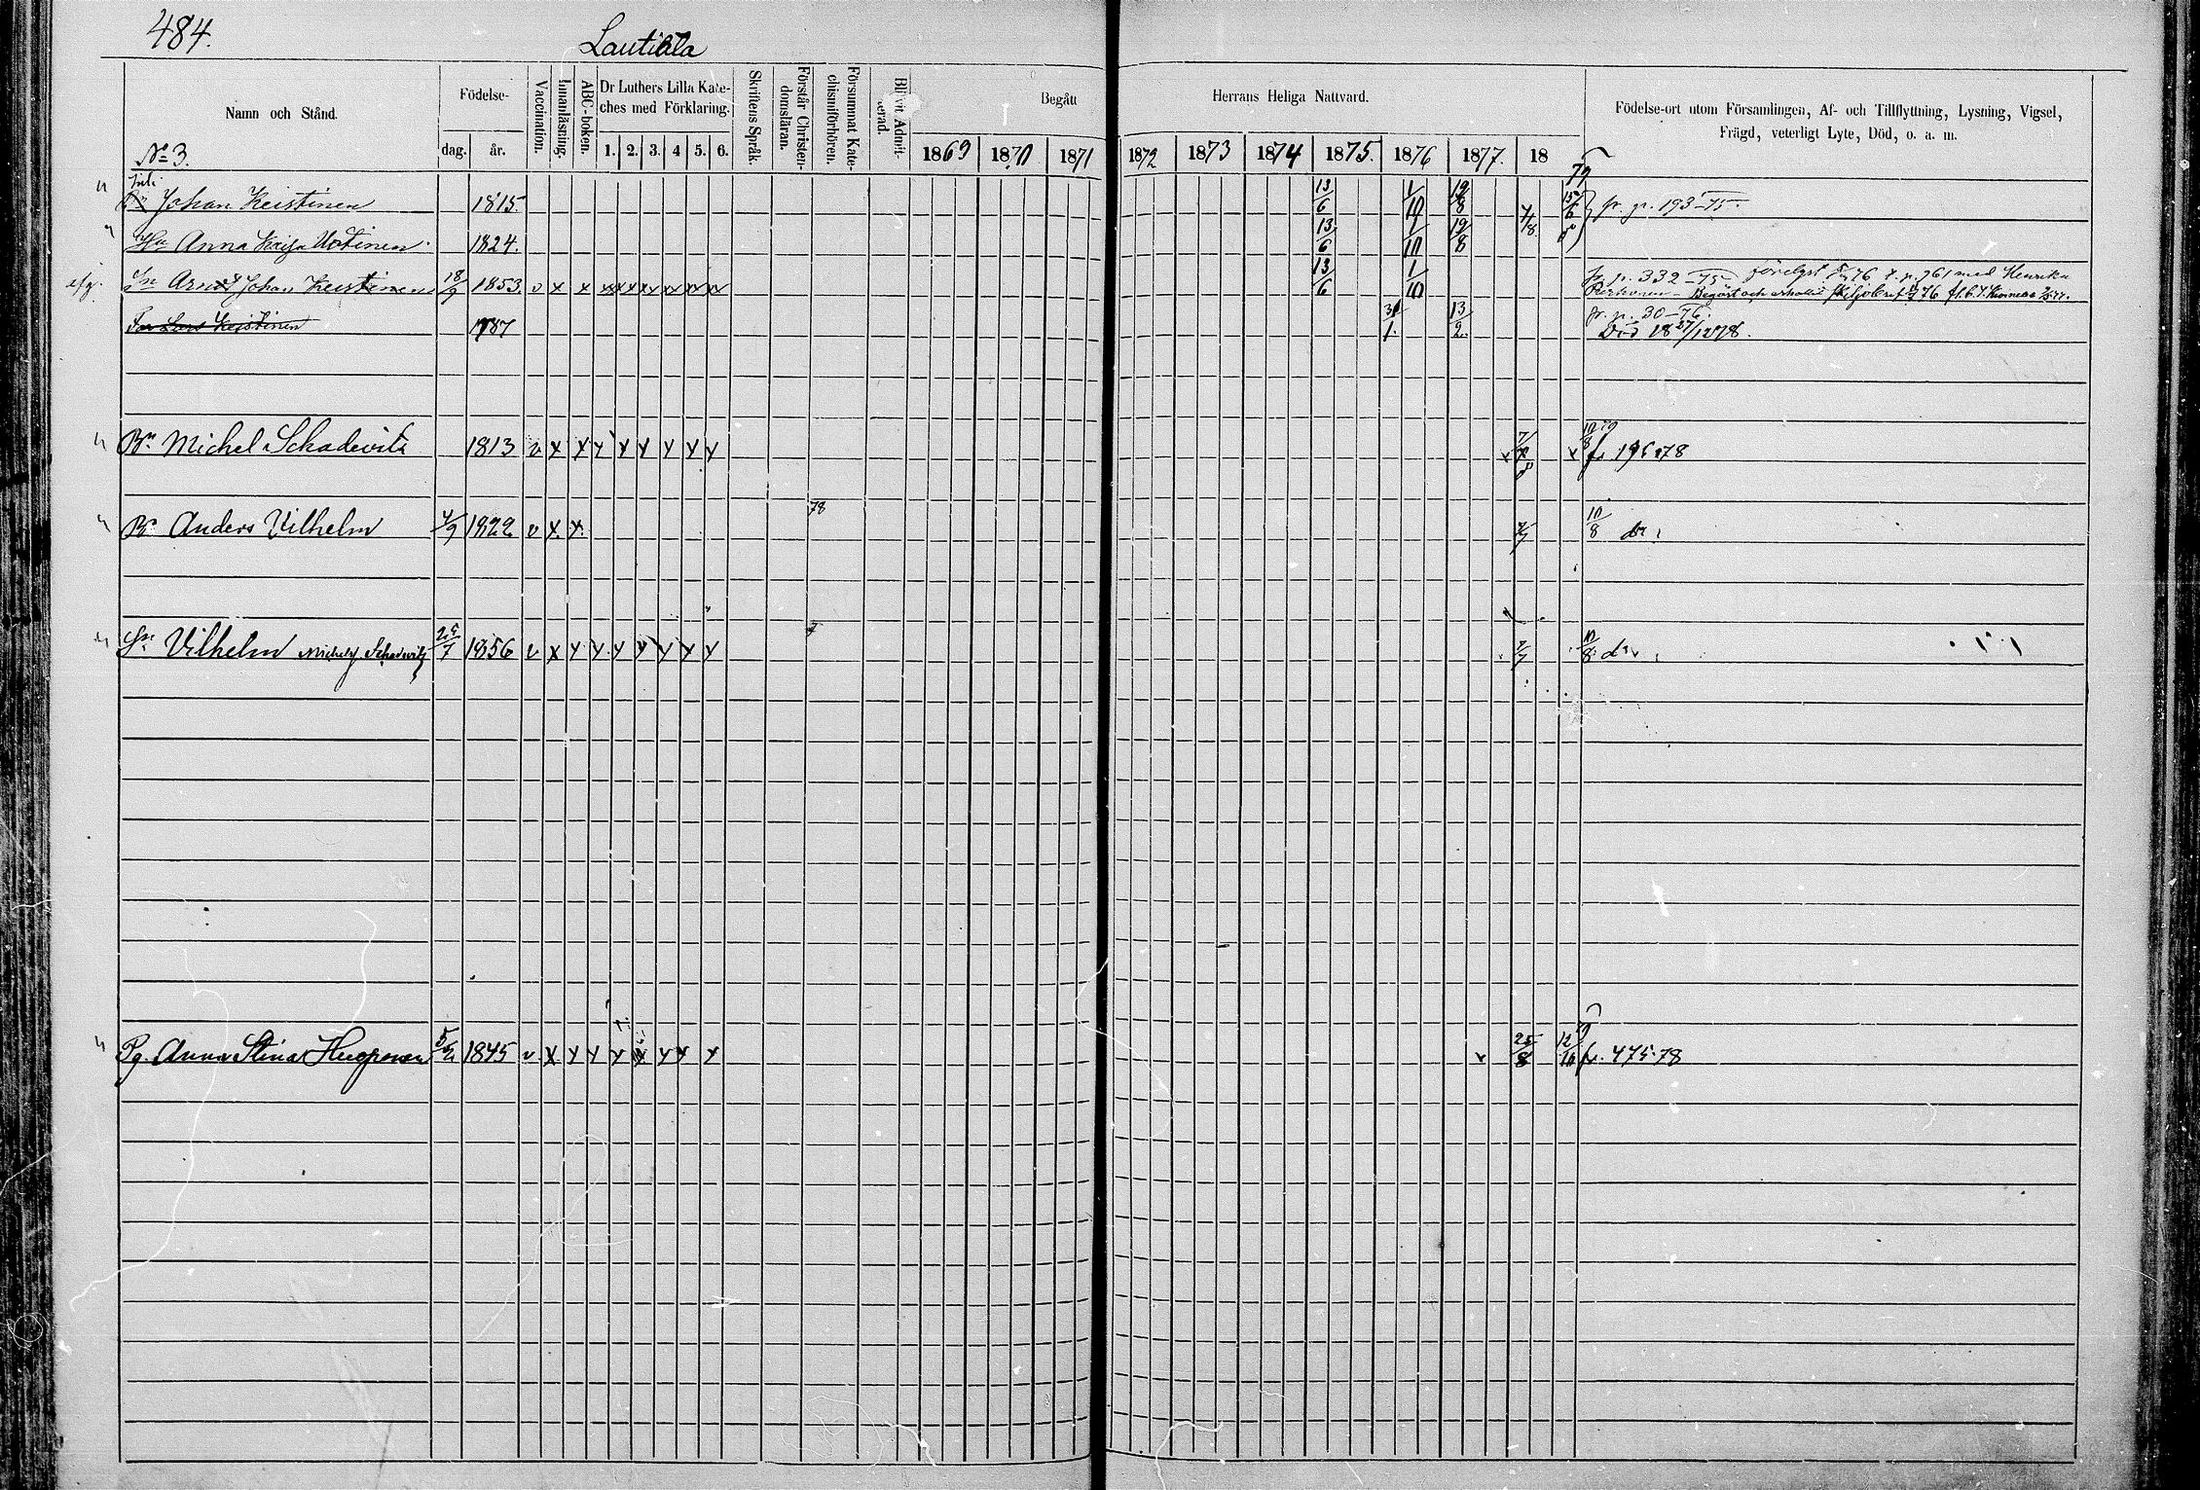 484.
Lautiala
Namn och Stånd.
Födelse-
dag. år.
Vaccination.
Innanläsning.
ABC-boken.
Dr Luthers Lilla Kate-
ches med Förklaring.
1. 2. 3. 4 5. 6.
Skriftens Språk.
Förstår Christen-
domsläran.
Försummat Kate-
chismiförhören.
Blifvit Admit-
terad.
Begått Herrans Heliga Nattvard.
1869 1870 1871 1872 1873 1874 1875. 1876 1877. 18 79
Födelse-ort utom Församlingen, Af- och Tillflyttning, Lysning, Vigsel,
Frägd, veterligt Lyte, Död, o. a. m.
No 3.
Johan Keistinen 1815. 13/6 1/10 19/8 15/6 fr. p. 193-75.
Hu Anna Kaisa 1824. 13/6 1/10 19/8
Sn Johan Keistinen 18/9 1853. v x x 13/6 1/10 fr. p. 332-75 med Henrika
Lars Keistinen 1787 13/2. fr. p. 30-76.
Död 1878.
Bn Michel Schadevitz 1813 v x x y y y y y y 10/8 79 fr 196 78
Bn Anders Vilhelm 4/9 1822 v x. x. 78 10/8 do
Sn Vilhelm Michelss. Schadevitz 25/7 1856 v x y y y y y y y 10/8 do
Pg. Anna Stina Hupponen 5/2 1845 v x y y y x y x y 25/8 12/10 fr. 475.78